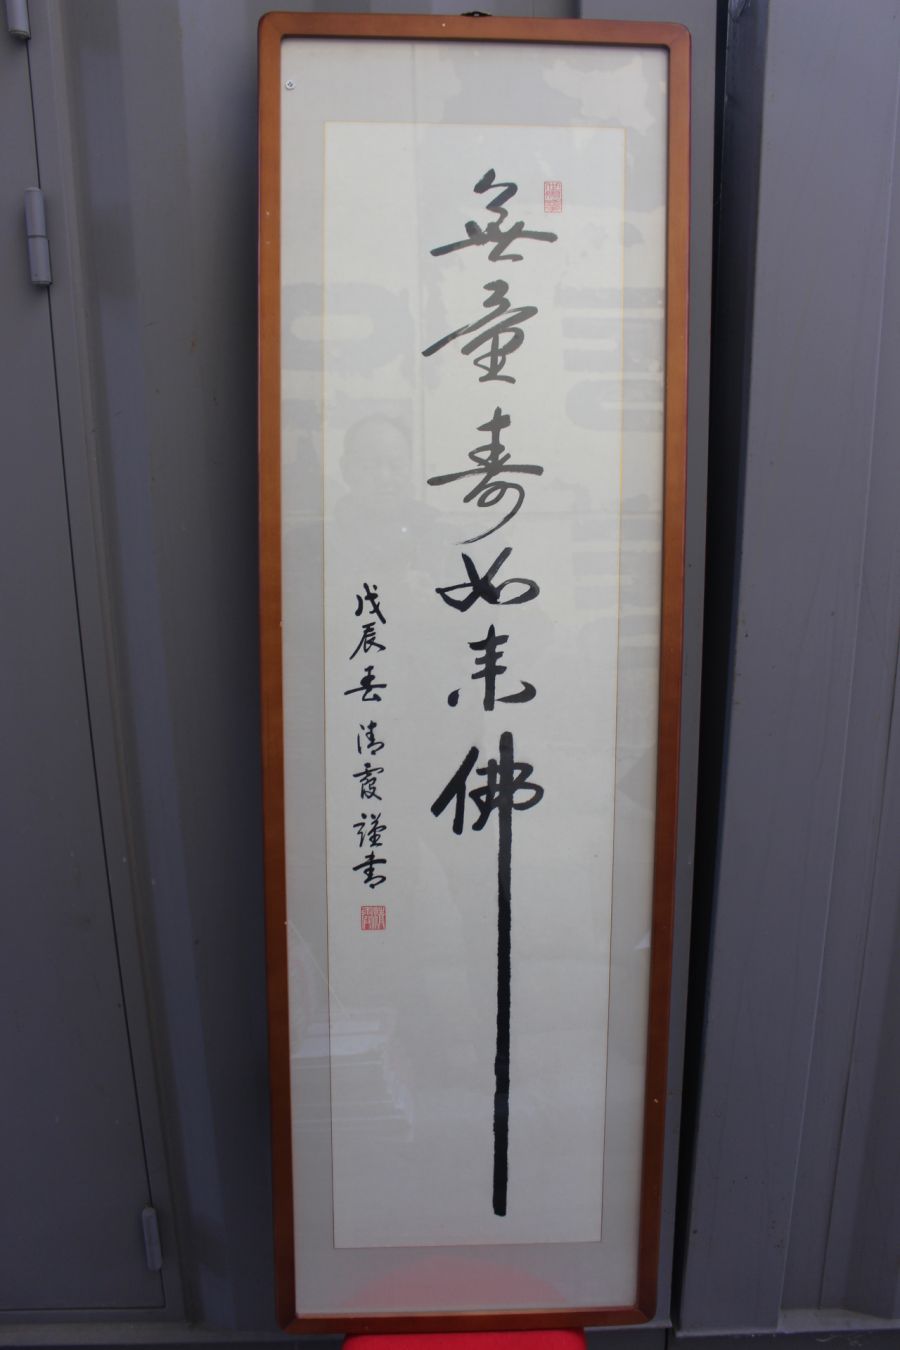 無量壽如来佛
戊辰春清霞謹書